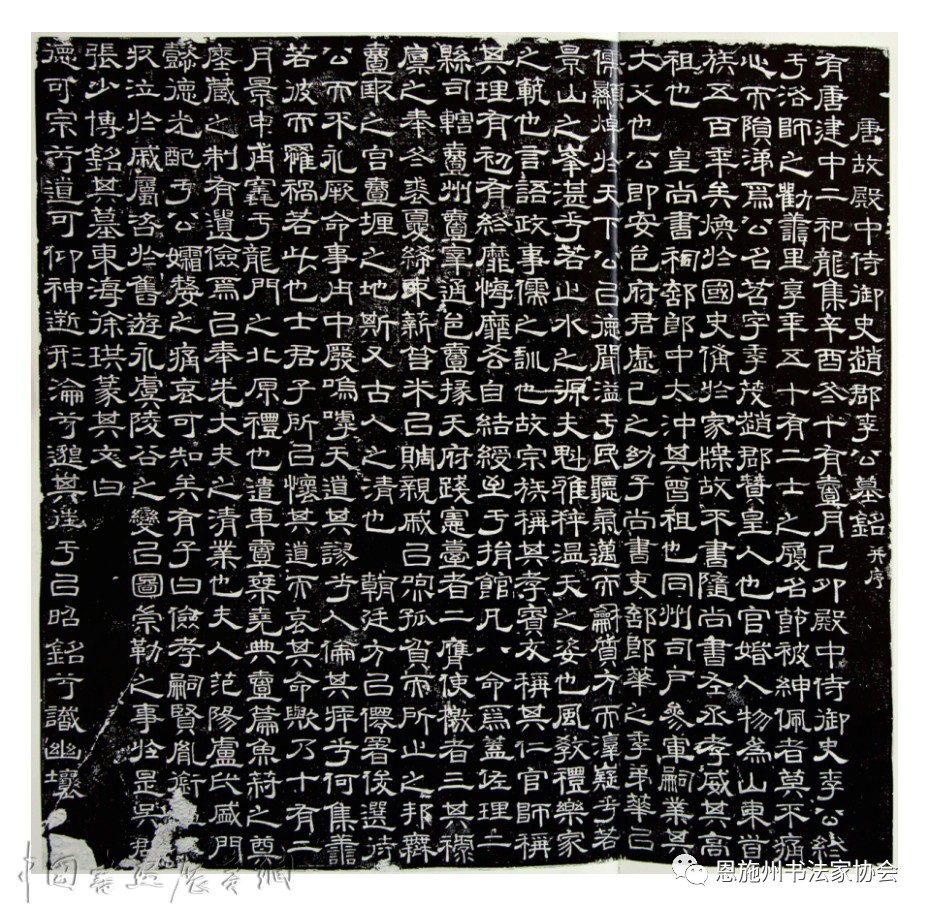 唐故殿中侍御史趙郡李公墓銘 并序
有唐建中二祀龍集辛酉冬十有壹月己卯殿中侍御史李公終
于洛師之勸善里享年五十有二士之履名節被紳佩者莫不痛
心而隕涕焉公名苕字季茂趙郡贊皇人也官婚人物為山東首
族五百年矣煥於國史脩於家牒故不書隨尚書左丞孝威其高
祖也 皇尚書祠部郎中太沖其曾祖也同州司戶參軍嗣業其
大父也公即安邑府君虛己之幼子尚書吏部郎華之季弟華已
保顯焯於天下公已德聞溢于民聽氣邁而龢質方而凜疑乎若
景山之峯湛乎若止水之源夫魁雅粹溫天之姿也風教禮樂家
之軌也言語政事儒之訓也故宗族稱其孝賓友稱其仁官師稱
其理有初也有終靡悔靡吝自結綬至于捐館凡八命焉蓋佐理二
縣司轄壹州壹宰通邑壹掾天府踐憲臺者二膺使檄者三其穆
廩之奉冬裘夏絺束薪苜米已賙親戚已恤孤貧而所止之邦釋
壹畝之宮壹堰之地斯又古人之清也 朝廷方已僊署俊選待
公而不永厥命事由中廢嗚嘑天道其謬乎人倫其捊乎何集善
若彼而罹禍若此也士君子所已懷其道而哀其命歟乃十有二
月景申甫窆于龍門之北原禮也遣車壹乘堯典壹篇魚䓫之奠
座蔵之制有遺儉焉已奉先大夫之清業也夫人范陽盧氏盛門
懿德光配于公孀嫠之痛哀可知矣有子曰儉孝嗣賢胤銜
㧞泣於戚屬咨於舊遊永虞陵谷之變已圖篆勒之事於是吳郡
張少博銘其墓東海徐珙篆其文曰
德可宗兮道可仰神逝形淪兮邈其往于已昭銘兮識幽壤
中國書法展覽網
恩施州书法家协会